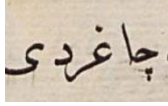 چاغردی